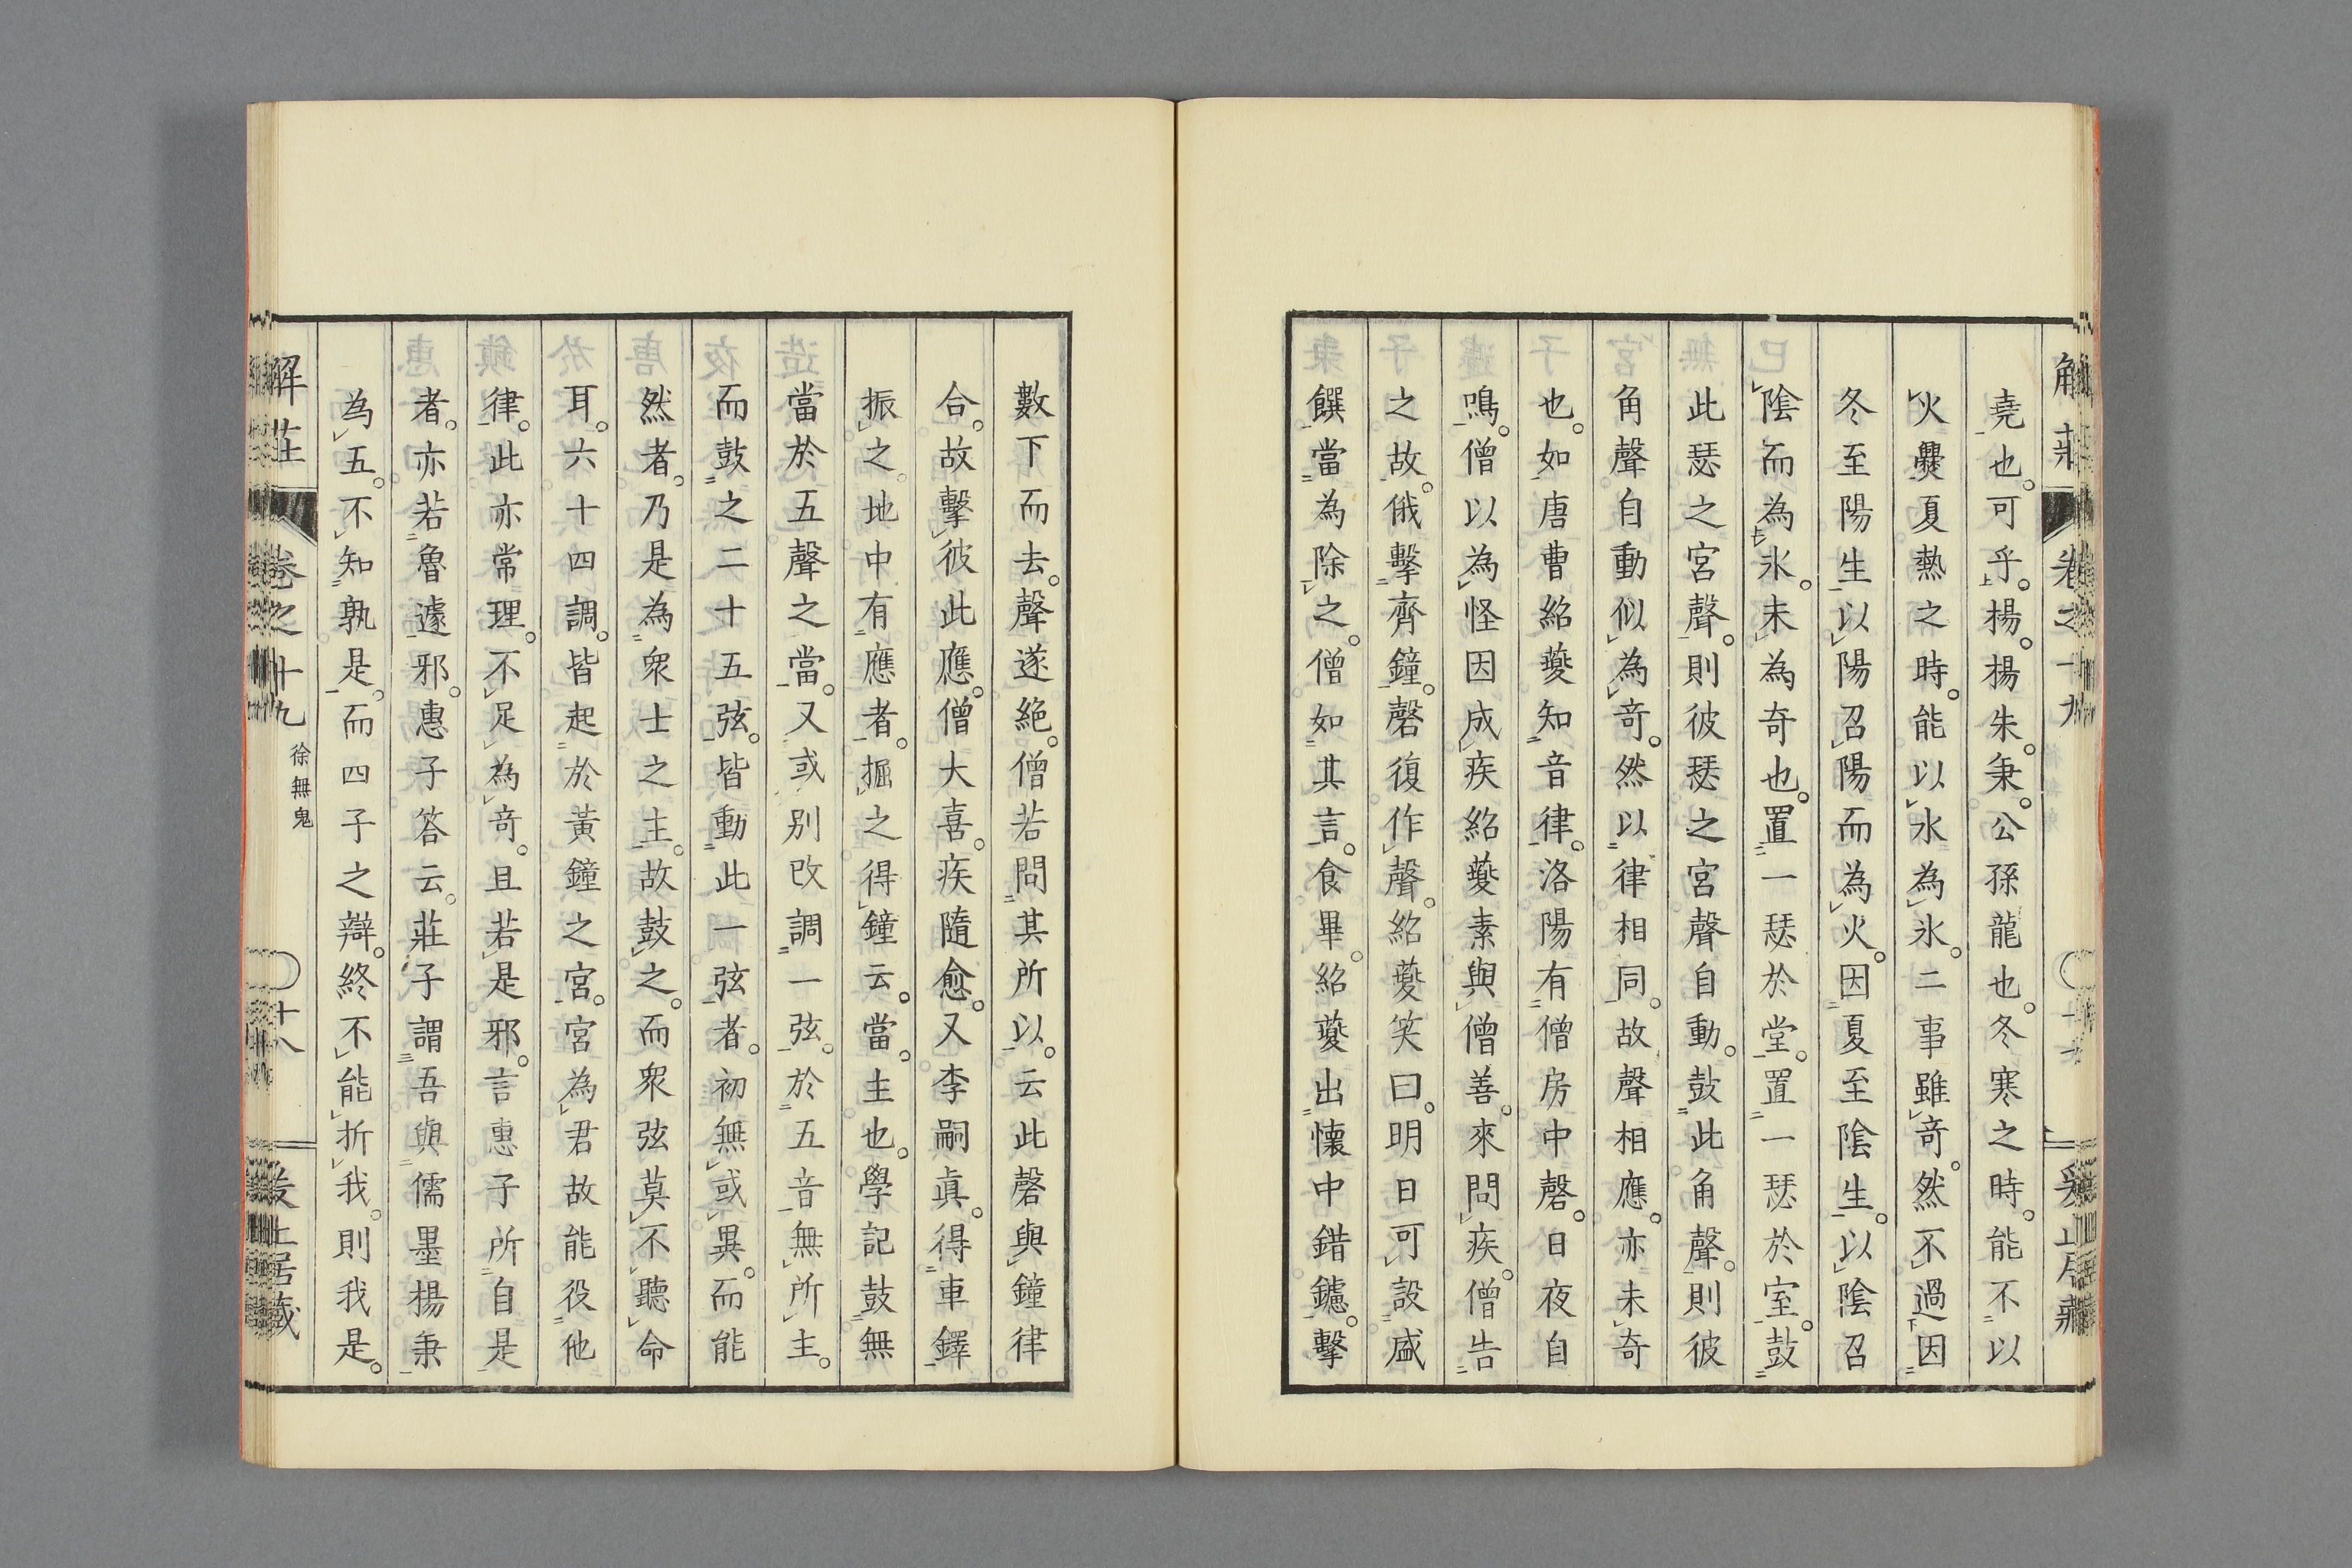 堯也。可乎。楊。楊朱。秉。公孫龍也。冬寒之時。能不以
火爨夏熱之時。能以水為氷。二事雖奇。然不過因
冬至陽生以陽召陽而為火。因夏至陰生。以陰召
陰而為氷。未為奇也。置一瑟於堂。置一瑟於室。鼓
此瑟之宮聲。則彼瑟之宮聲自動。鼓此角聲。則彼
角聲自動似為奇。然以律相同。故聲相應。亦未奇
也。如唐曹紹夔知音律。洛陽有僧房中磬。日夜自
鳴。僧以為怪因成疾紹夔素與僧善。來問疾。僧告
之故。俄擊齊鐘。磬復作聲。紹夔笑曰。明日可設盛
饌當為除之。僧如其言。食畢。紹夔出懷中錯鑢。擊
數下而去。聲遂絕。僧若問其所以。云此磬與鐘律
合。故擊彼此應。僧大喜。疾隨愈。又李嗣真。得車鐸
振之。地中有應者。掘之得鐘云。當。主也。學記鼓無
當於五聲之當。又或別改調一弦。於五音無所主。
而鼓之二十五弦。皆動此一弦者。初無或異。而能
然者。乃是為衆士之主。故鼓之。而衆弦莫不聽命
耳。六十四調。皆起於黃鐘之宮。宮為君故能役他
律。此亦常理。不足為奇。且若是邪。言惠子所自是
者。亦若魯遽邪。惠子答云。莊子謂吾與儒墨楊秉
為五。不知孰是。而四子之辯。終不能折我。則我是。
解莊
卷之十九
徐無鬼
十八